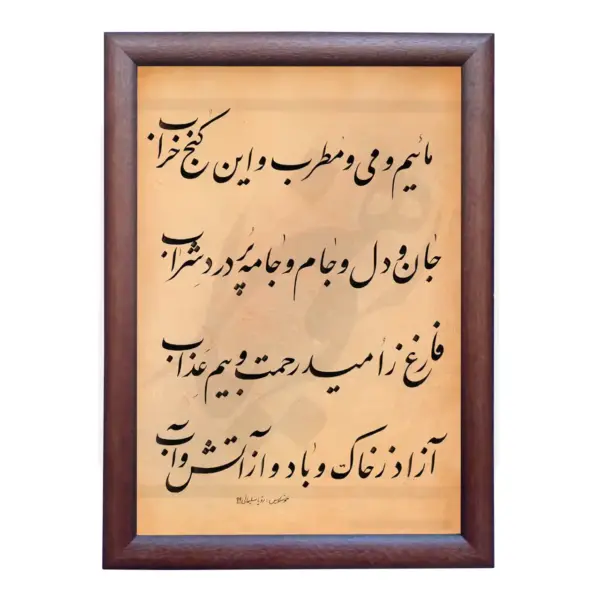 مائیم و می و مطرب و این کنج خراب
جان و دل و جام و جامه پُر دردِ شراب
فارغ ز امید رحمت و بیم عَذاب
آزاد ز خاک و باد و از آتش و آب